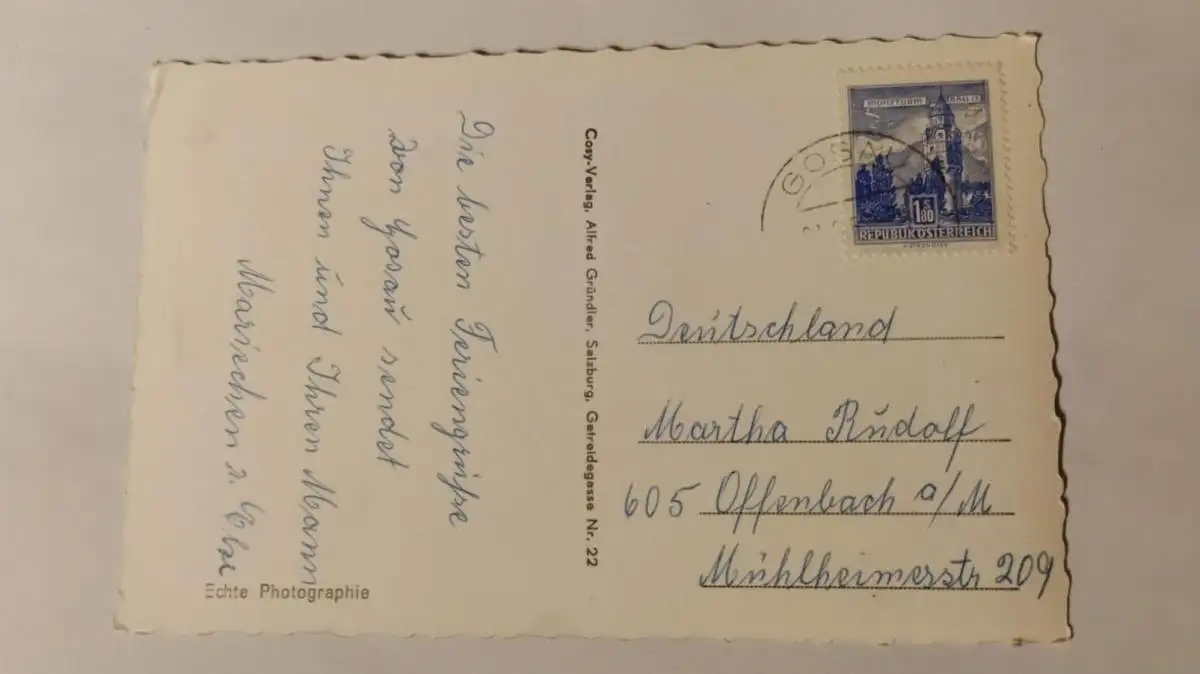 Die besten Feriengrüße
von Gosau sendet
Ihnen und Ihren Mann
Marischen
Echte Photographie
Cosy-Verlag, Alfred Gründler, Salzburg, Getreidegasse Nr. 22
MÜNZTURM
GOSAU
1.80
S
REPUBLIK ÖSTERREICH
Deutschland
Martha Rudolf
605 Offenbach a/M
Mühlheimerstr 209